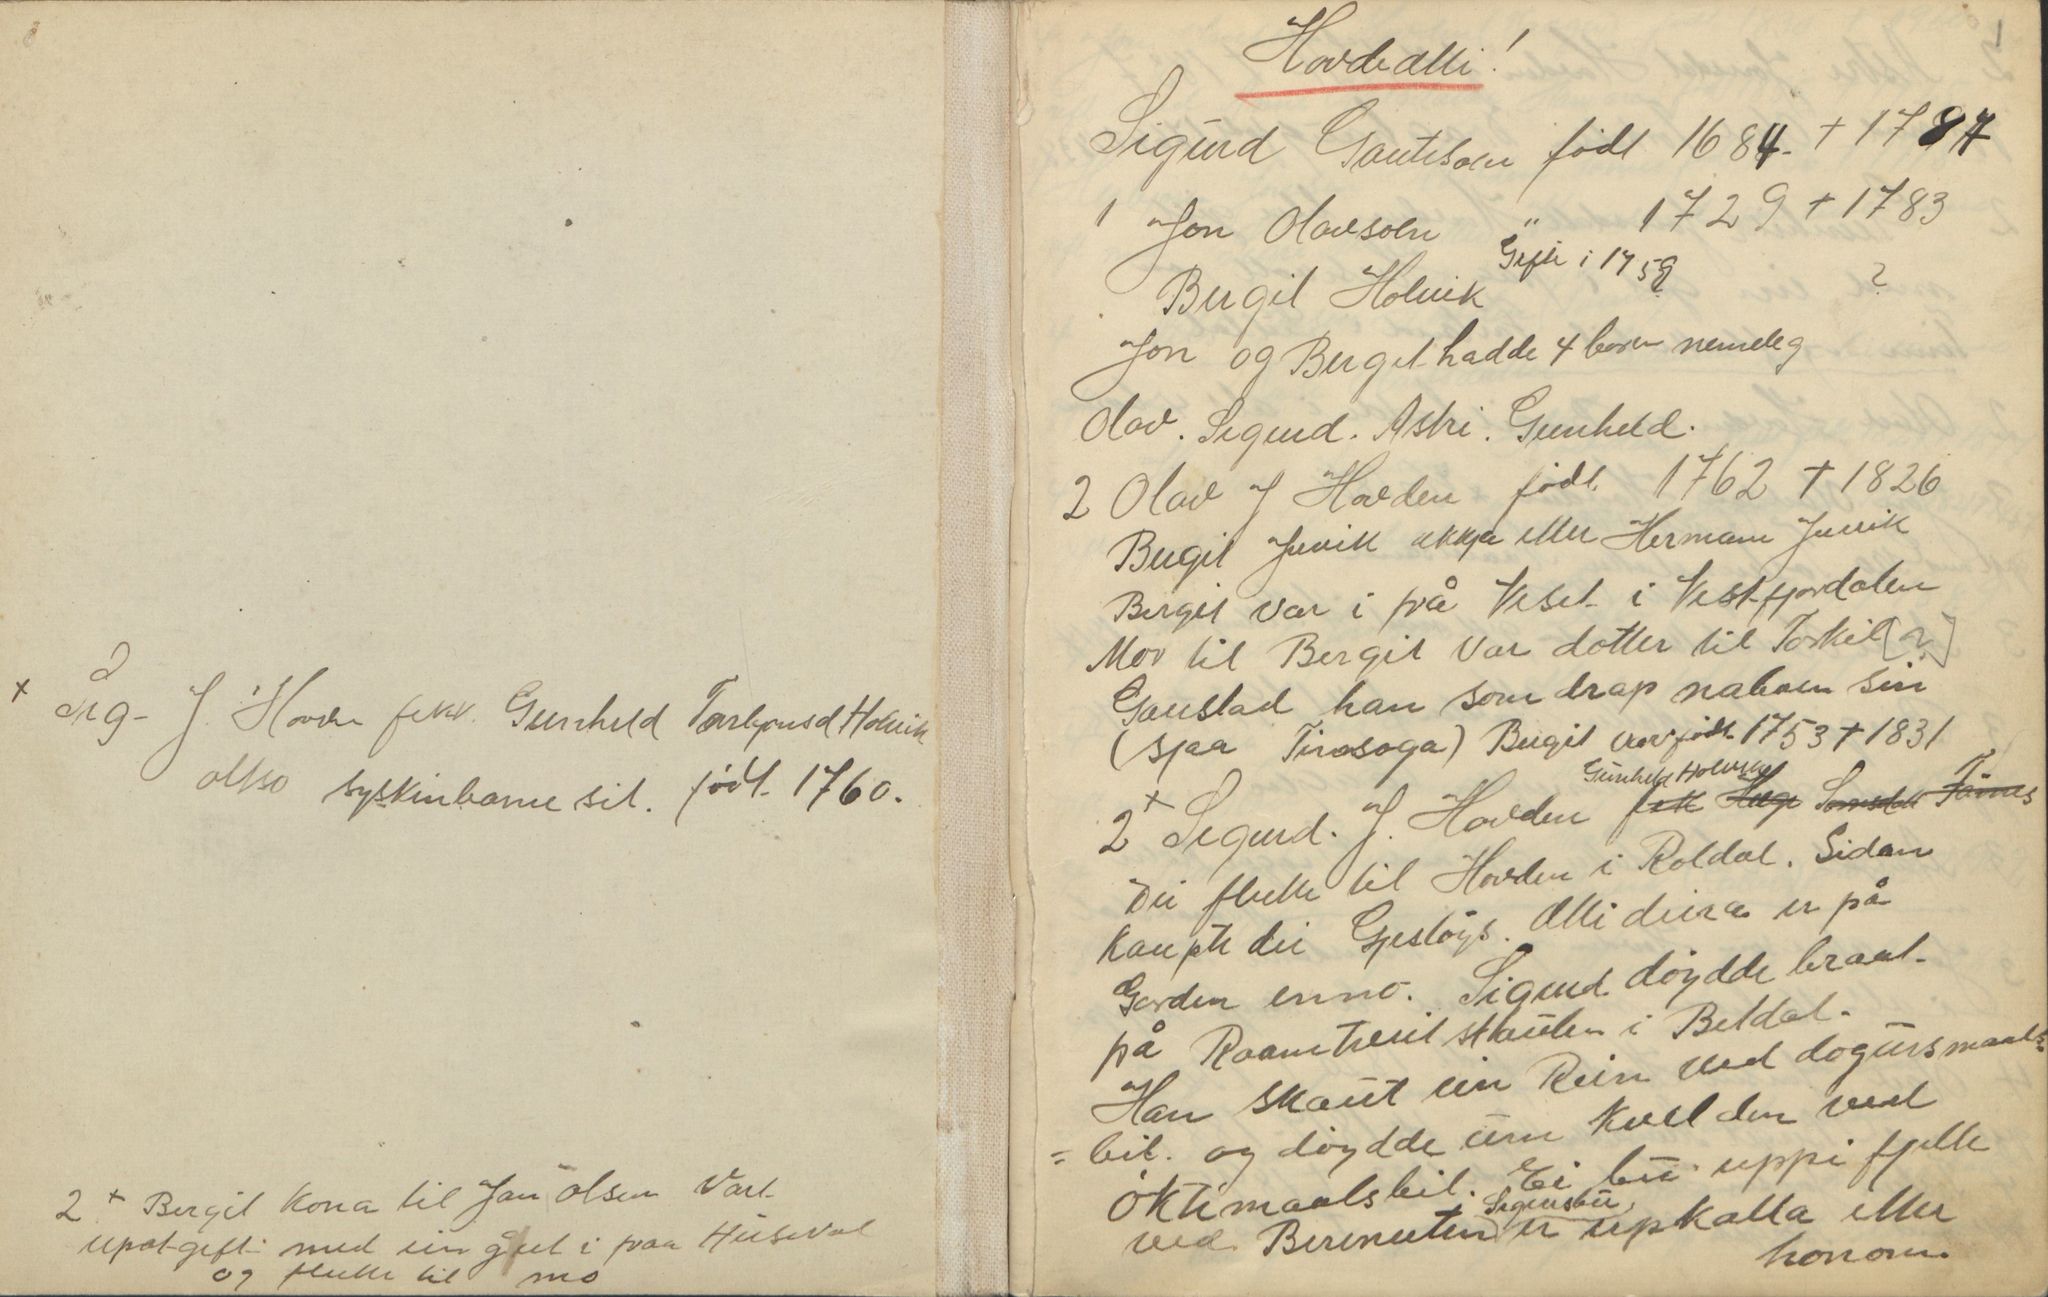 + Sig- J. Hovden fekk Gunhild Torbjønsd Holvik
altso syskinbarne sit. født 1760.
2 + Bergit kona til Jon Olsen Vart
upat-gift med ein gut i fraa Huseval
og flutte til mo
1
Hovdeætti!
Sigurd Gauteson født 1684 - + 1787
1 Jon Olavson " 1729 + 1783
Gifte i 1759
Bergit Holvik ?
Jon og Bergit hadde 4 born nemeleg
Olav. Sigurd. Astri. Gunheld.
2 Olav J Hovden født 1762 + 1826
Bergit Juvik ekkja etter Hermann Juvik
Bergit var i frå Veset i Vestfjordalen
Mor til Bergit var dotter til Torkil [?]
Gaustad han som drap naboen sin
(sjaa Tinnsoga) Bergit var født 1753 + 1831
Gunheld Holvik
2 + Sigurd. J. Hovden fekk Hæge
Dei flutte til Hovden i Roldal. Sidan
kaupte dei Gjestøyl. Ætti deira er på
Garden enno. Sigurd døydde braat
på staulen i Beldal.
Han skaut ein Rein ved dogursmaals=
= bil. og døydde um kvelden ved
øktemaalsbil. Ei bu uppi fjelle
Sigursbu
ved Berenuten er upkalla etter
honom.